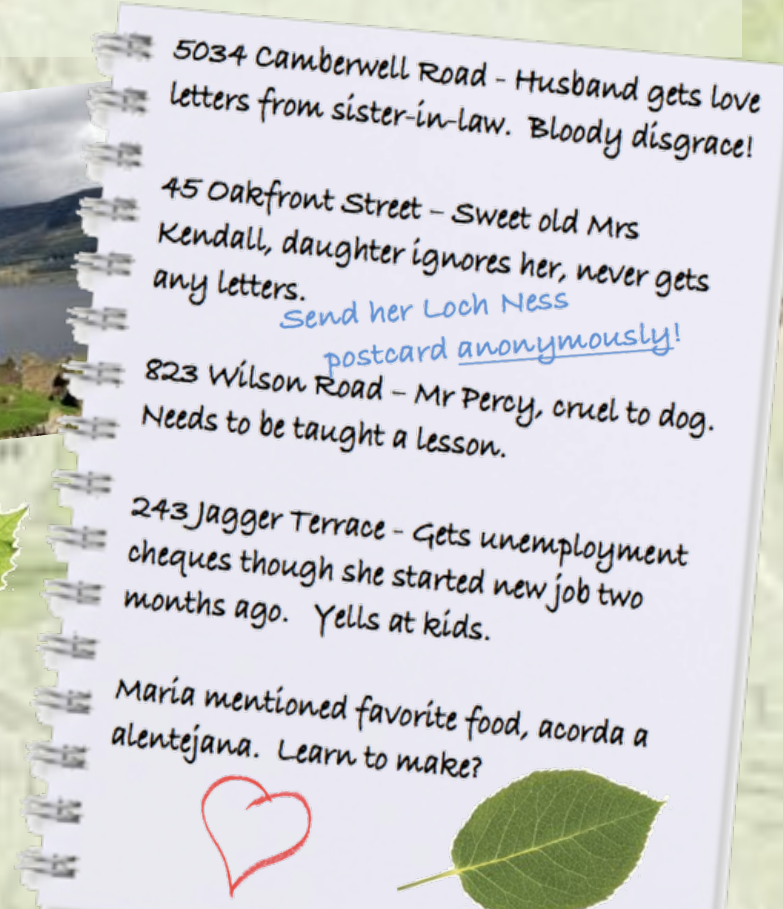 5034 Camberwell Road - Husband gets love
letters from sister-in-law. Bloody disgrace!
45 Oakfront Street - Sweet old Mrs
Kendall, daughter ignores her, never gets
any letters.
Send her Loch Ness
postcard anonymously!
823 Wilson Road - Mr Percy, cruel to dog.
Needs to be taught a lesson.
243 Jagger Terrace - Gets unemployment
cheques though she started new job two
months ago. Yells at kids.
Maria mentioned favorite food, acorda a
alentejana. Learn to make?